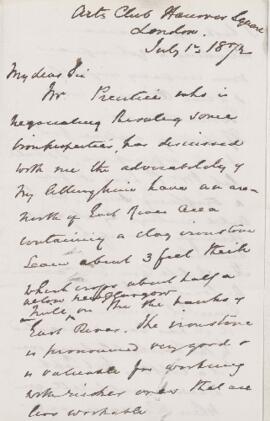 Arts Club Hanover Square
London.
July 1st 1872
My dear Sir
Mr Prentice who is
negociating some
has discussed
with me the advisability of
my have an area
North of East River area
containing a clay ironstone
Seam about 3 feet thick
which crops about half a
mile on the banks of
East River. The ironstone
is pronounced very good &
is valuable for working
with richer ores that are
less workable